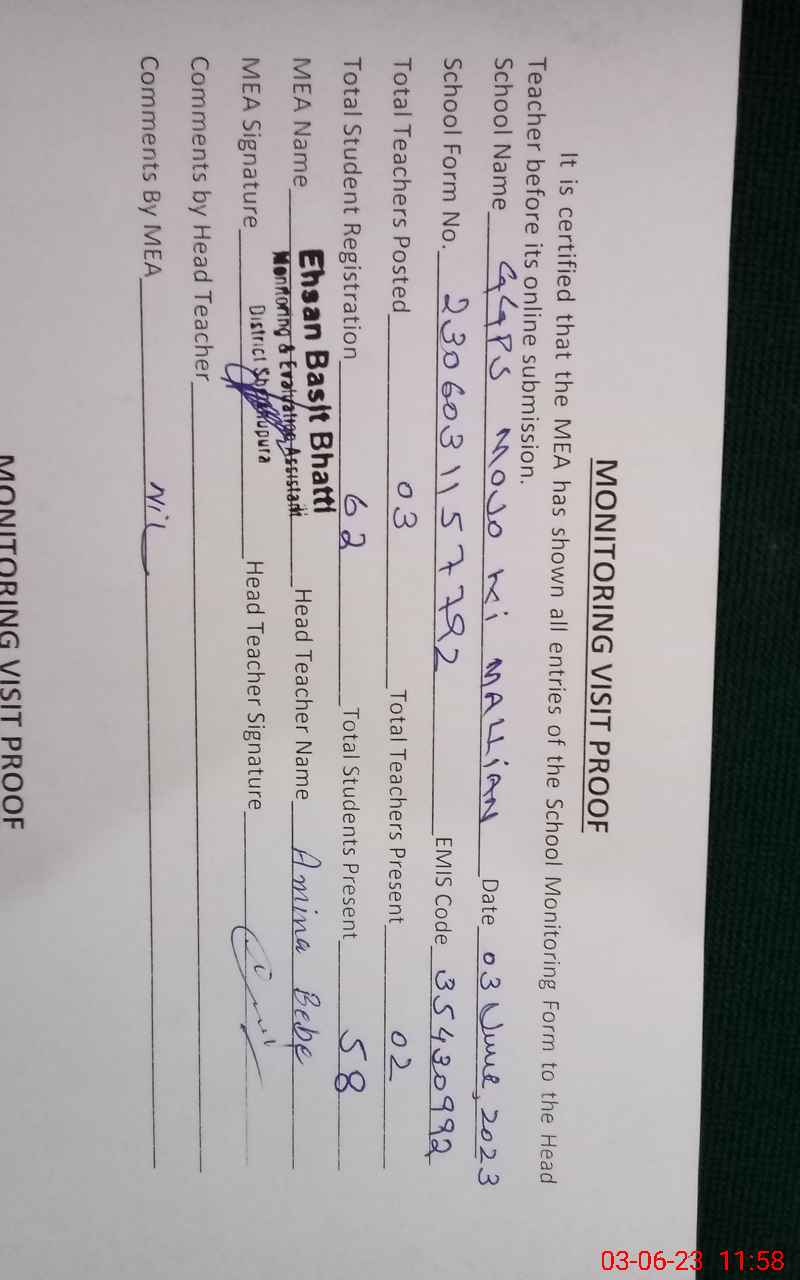 MONITORING VISIT PROOF
It is certified that the MEA has shown all entries of the School Monitoring Form to the Head
Teacher before its online submission.
School Name GGPS MOJO Ki MALLiAN Date 03 June, 2023
School Form No. 2306031157792 EMIS Code 35430992
Total Teachers Posted 03 Total Teachers Present 02
Total Student Registration 62 Total Students Present 58
MEA Name Ehsan Basit Bhatti Head Teacher Name Amina Bebe
Monitoring & Evaluation Assistant
District Sheikhupura
MEA Signature Head Teacher Signature
Comments by Head Teacher
Comments By MEA NiL
MONITORING VISIT PROOF
03-06-23 11:58